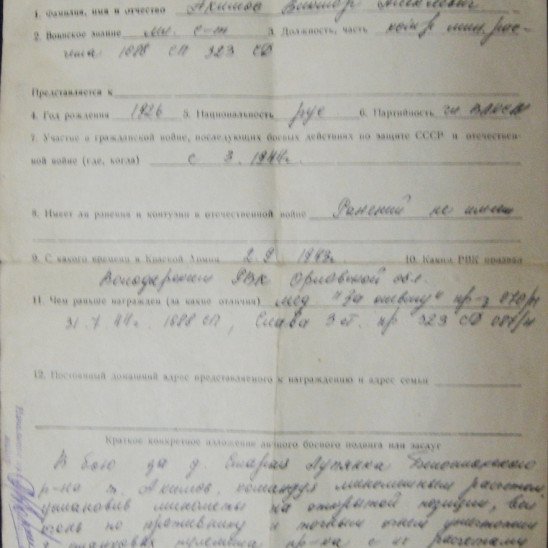 1. Фамилия, имя и отчество Акимов Виктор Алексеевич
2. Воинское звание мл. с-т 3. Должность, часть ком-р мин. рас-
чета 1688 СП 323 СД
Представляется к
4. Год рождения 1926 5. Национальность рус 6. Партийность чл. ВЛКСМ
7. Участие в гражданской войне, последующих боевых действиях по защите СССР и отечествен-
ной войне (где, когда) с 3. 1944г.
8. Имеет ли ранения и контузии в отечественной войне Ранений не имеет
9. С какого времени в Красной Армии 2. 9. 1943г 10. Каким РВК призван
Володарским РВК Орловской обл.
11. Чем ранее награжден (за какие отличия) мед "За отвагу" пр-з 070/н
31. 7. 44г. 1688 СП, Слава 3 ст. пр 323 СД 087/н
12. Постоянный домашний адрес представляемого к награждению и адрес семьи
Краткое конкретное изложение личного боевого подвига или заслуг
В бою за д. Старая Лупянка
р-на т. Акимов, командуя минометным расчетом,
установив минометы на открытой позиции, вел
огонь по противнику и точным огнем уничтожил
станковых пулемета пр-ка с их расчетами